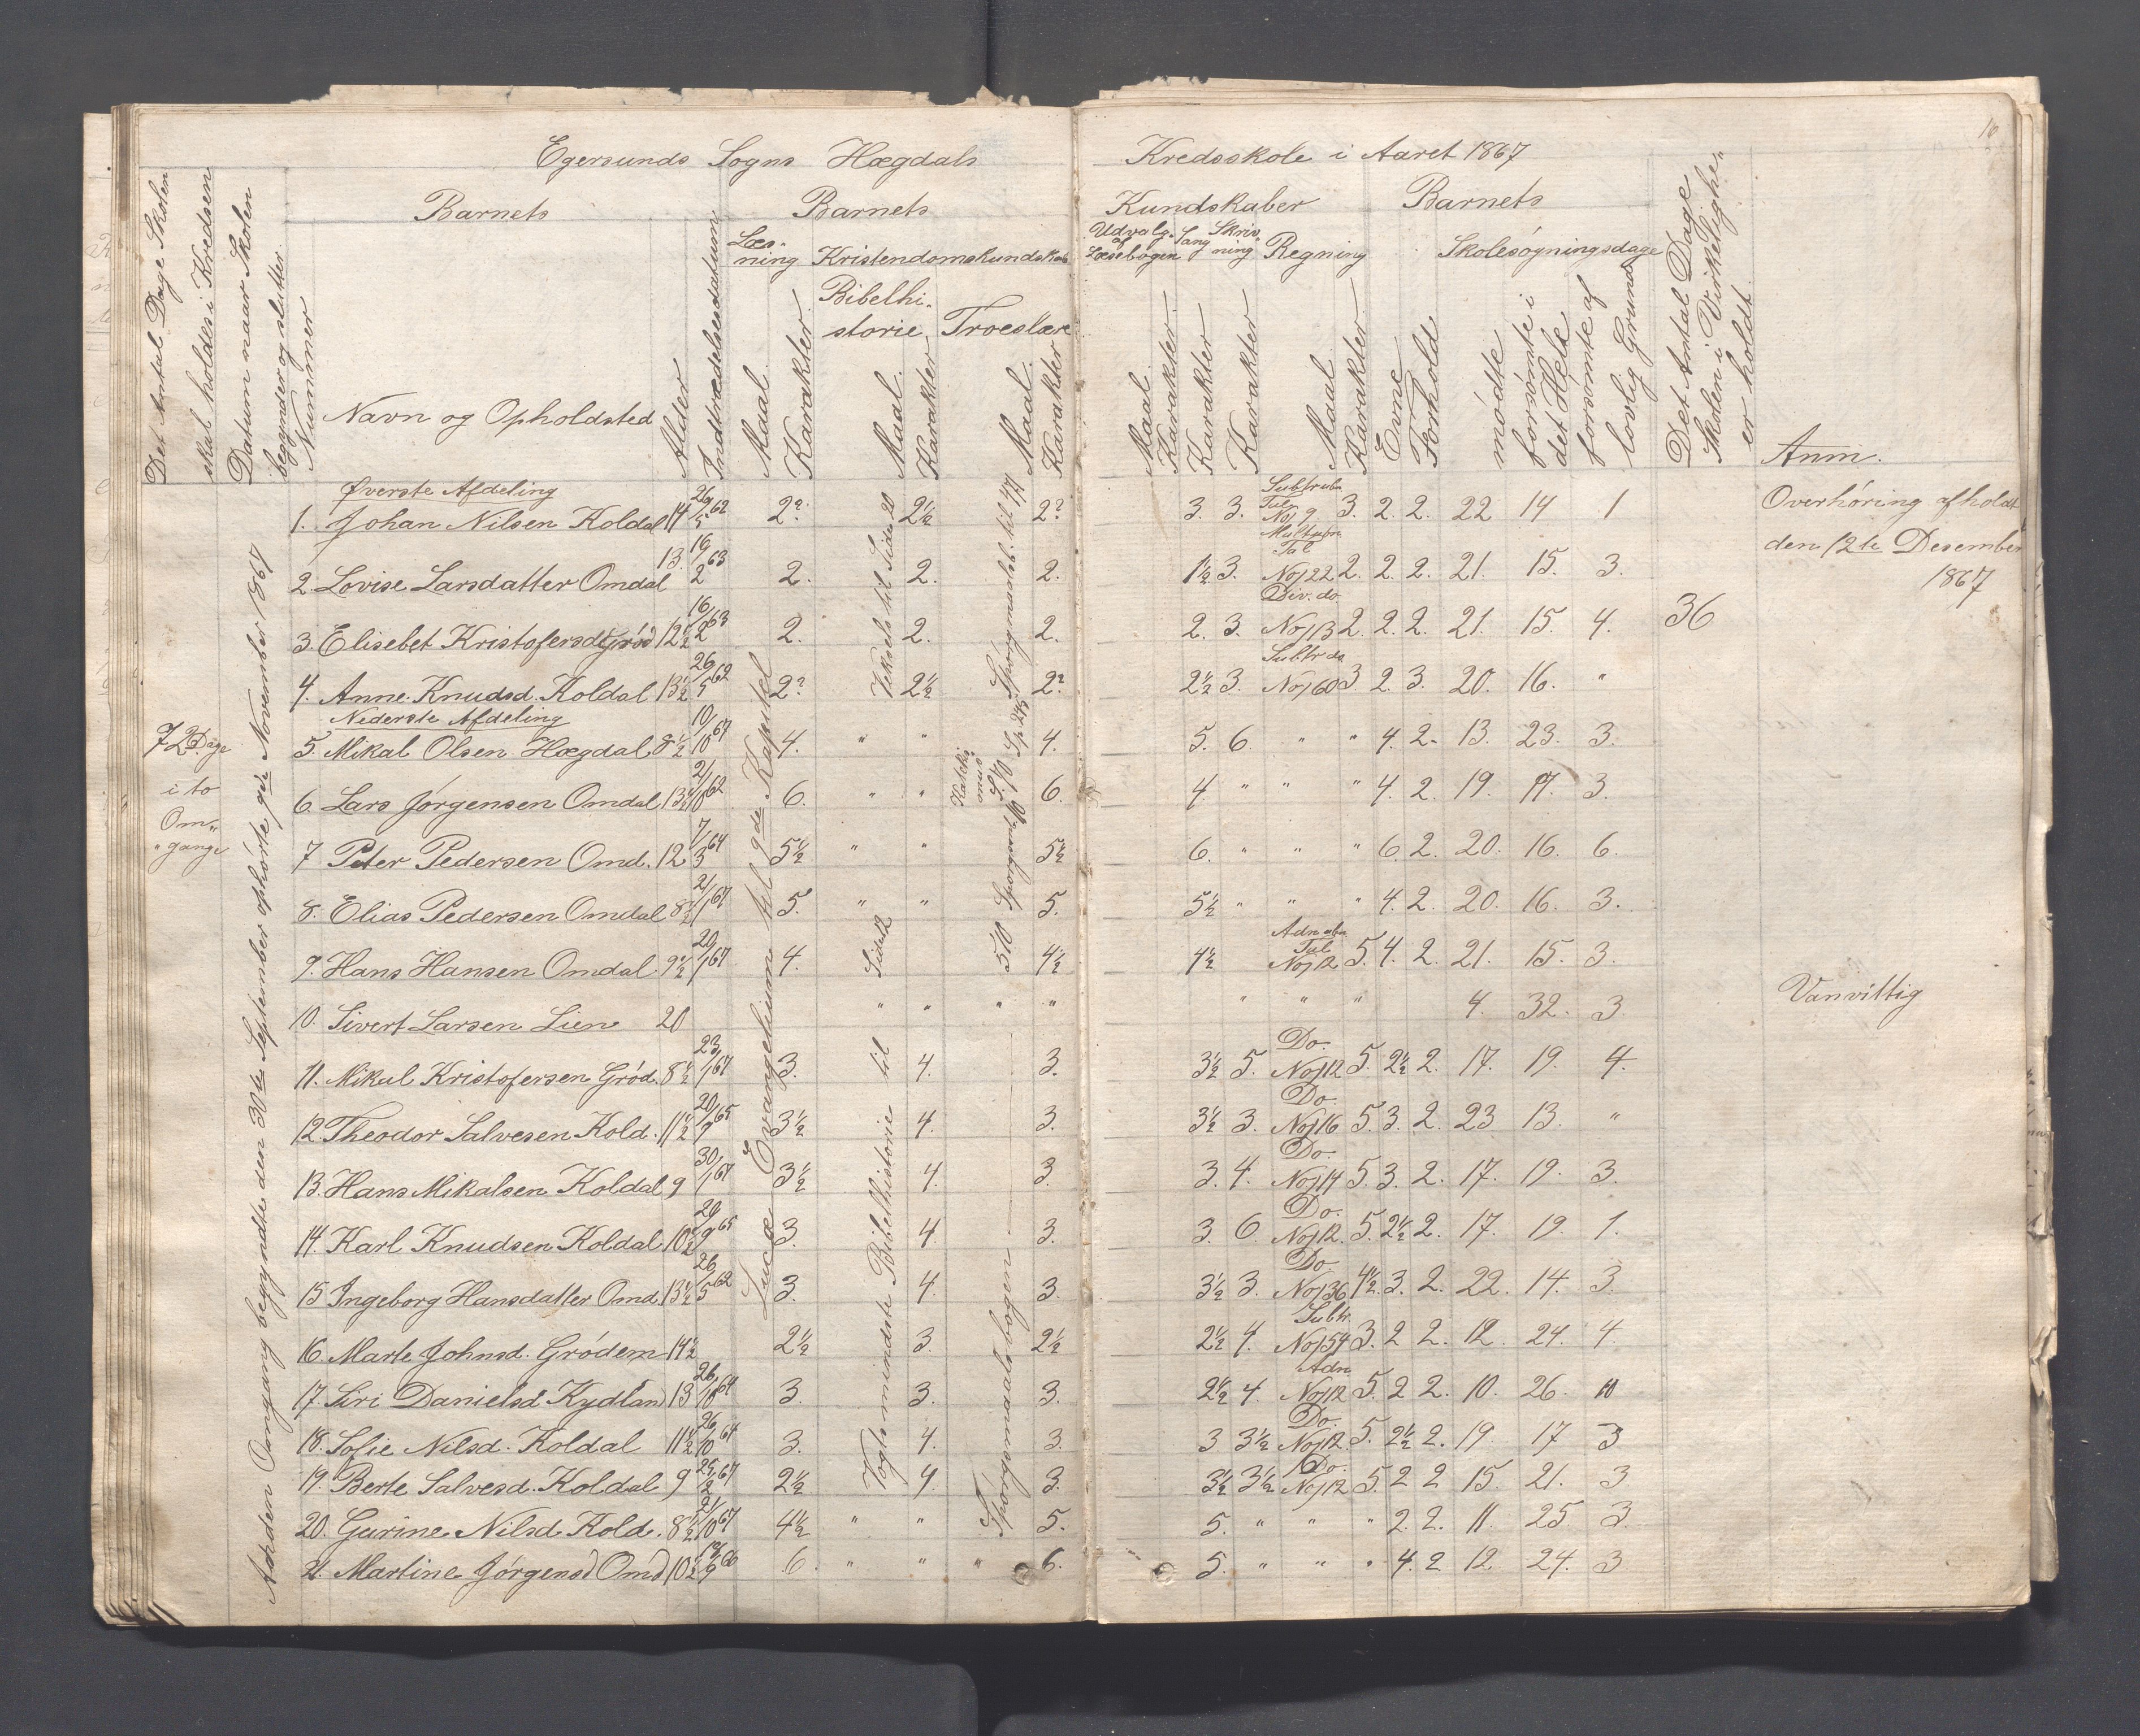 10
Egersunds Sogns Hægdals Kredsskole i Aaret 1867
Det Antal Dage Skolen
skal holdes i Kredsen
Datum naar Skolen
begynder og slutter
Nummer
Barnets
Navn og Opholdsted
Alder
Indtrædelsesdatum
Barnets
Kundskaber
Barnets
Læs-
ning Kristendomskundskab
Udvalg af Læsebogen Sang Skrivning Regning
Skolesøgningsdage
Bibelhi-
storie Troeslære
Maal Karakter Maal Karakter Maal Karakter
Maal Karakter Karakter Karakter Maal Karakter Evne Forhold mødte
forsømte i
det Hele
forsømte af
lovlig Grund
Det Antal Dage
Skolen i Virkelighe-
er holdt
Anm.
Øverste Afdeling
1. Johan Nilsen Koldal 14 26/5 62 2? 2½ 2? 3. 3. No 9 3. 2. 2. 22 14 1
Overhøring afholdt
den 12te Desember
1867
2. Lovise Larsdatter Omdal 13. 16/2 63 2. 2. 2. 1½ 3. Tal No 22 2. 2. 2. 21. 15. 3.
3. Elisebet Kristofersd Grød 12½ 16/2 63 2. 2. 2. 2. 3. Div. do No 13 2. 2. 2. 21. 15. 4. 36
4. Anne Knudsd. Koldal 13½ 26/5 62 2? 2½ 2? 2½ 3. Subtr do No 60 3 2. 3. 20. 16. "
Nederste Afdeling
5. Mikal Olsen Hægdal 8½ 10/10 67 4. " " 4. 5. 6. " " 4. 2. 13. 23. 3.
72 Dage
i to
Om-
gange
6. Lars Jørgensen Omdal 13½ 21/10 62 6. " " 6. 4. " " " 4. 2. 19. 17. 3.
7 Peter Pedersen Omd. 12 7/3 64 5½ " " 5½ 6. " " " 6. 2. 20. 16. 6.
8. Elias Pedersen Omdal 8½ 21/1 67 5. " " 5. 5½ " " " 4. 2. 20. 16. 3.
9. Hans Hansen Omdal. 9½ 20/1 67 4. 4½ 4½ Tal No 12 5. 4. 2. 21. 15. 3.
10. Sivert Larsen Lien 20 " " " " " " " 4. 32. 3 Vanvittig
11. Mikal Kristofersen Grød. 8½ 23/1 67 3. 4. 3. 3½ 5. Do. No 12 5. 2½ 2. 17. 19. 4.
12. Theodor Salvesen Kold. 11½ 20/9 65 3½ 4. 3. 3½ 3. Do No 16 5. 3. 2. 23 13. "
13. Hans Mikalsen Koldal 9 30/1 67 3½ 4. 3. 3. 4. Do. No 14 5. 3. 2. 17. 19. 3.
14. Karl Knudsen Koldal 10½ 20/9 65 3. 4. 3. 3. 6. Do. No 12. 5. 2½ 2. 17. 19. 1.
15 Ingeborg Hansdatter Omd. 13½ 26/5 62 3. 4. 3. 3½ 3. Do No 36 4½. 3. 2. 22. 14. 3.
16. Marte Johnsd. Grødem 14½ 2½ 3. 2½ 2½ 4. Subtr. No 54 3. 2 2. 12. 24. 4.
17. Siri Danielsd Kydland 13 26/10 64 3. 3. 3. 2½ 4. Adn No 12 5. 2 2. 10. 26. 10
18. Sofie Nilsd. Koldal 11½ 26/10 64 3. 4. 3. 3. 3½ Do. No 12. 5. 2½ 2. 19. 17 3
19. Berte Salvesd. Koldal 9 25/2 67 2½ 4. 3. 3½ 3½ Do. No 12 5. 2 2 15. 21. 3
20. Gurine Nilsd Kold. 8½ 21/10 67 4½ " " 5. 5. " " " 2. 2. 11. 25. 3.
21. Martine Jørgensd Omd 10½ 18/9 66 6. " " " 6. 5. " " " 4. 2 12. 24. 3
Anden Omgang begyndte den 30te September ophørte 9de November 1867
Lucæ Evangelium til 9de Kapitel
Vogts mindste Bibelhistorie til Side 12
Veksels til Side 20
Spørgsmaalsbogen